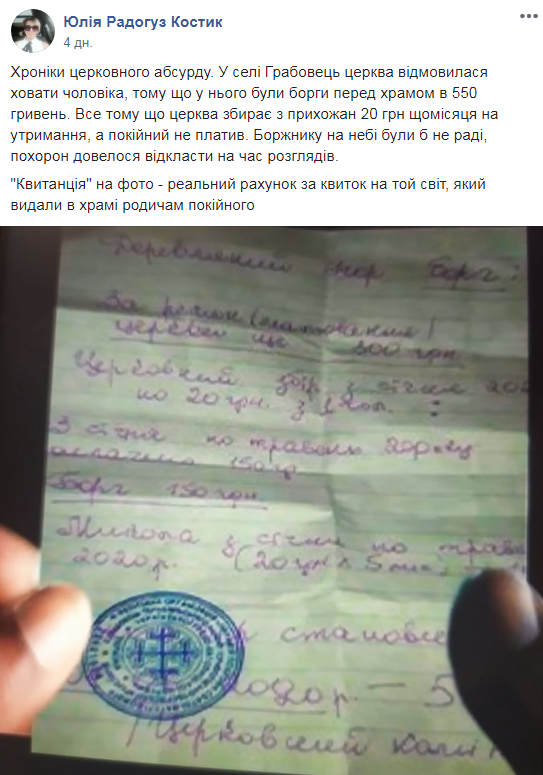 Юлія Радогуз Костик
4 дн.
Хроніки церковного абсурду. У селі Грабовець церква відмовилася
ховати чоловіка, тому що у нього були борги перед храмом в 550
гривень. Все тому що церква збирає з прихожан 20 грн щомісяця на
утримання, а покійний не платив. Боржнику на небі були б не раді,
похорон довелося відкласти на час розглядів.
"Квитанція" на фото - реальний рахунок за квиток на той світ, який
видали в храмі родичам покійного
борг:
За ремон
церкви ще 300 грн.
Церковний збір з січня
по 20 грн. з
З січня по травень
150
Борг 150 грн.
Микола з січня по трав
2020р. (20 грн х 5 міс.
становсе
2020р. – 5
Церковний комі